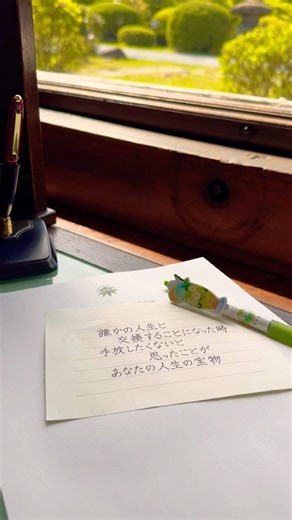 誰かの人生と
交換することになった時
手放したくないと
思ったことが
あなたの人生の宝物